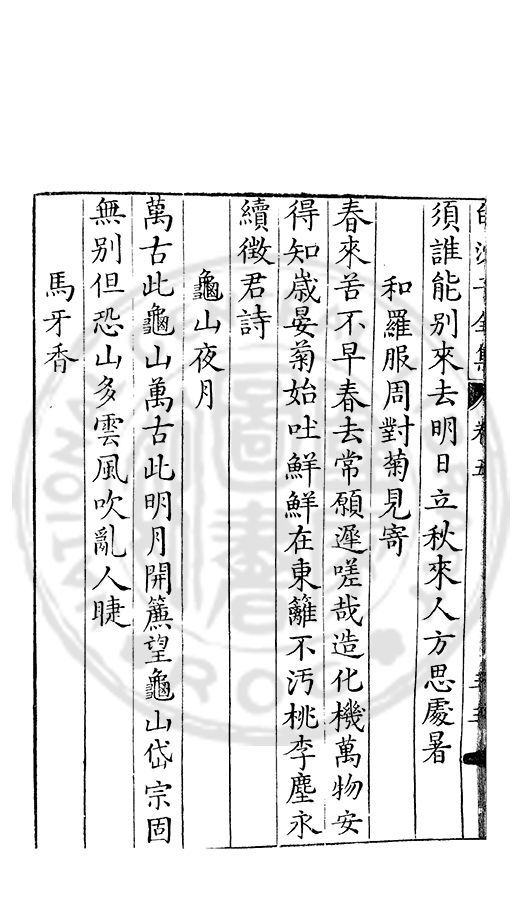 全集 卷五
須誰能別來去明日立秋來人方思處暑
和羅服周對菊見寄
春來苦不早春去常願遲嗟哉造化機萬物安
得知歲晏菊始吐鮮鮮在東籬不汚桃李塵永
續徵君詩
龜山夜月
萬古此龜山萬古此明月開簾望龜山岱宗固
無別但恐山多雲風吹亂人睫
馬牙香